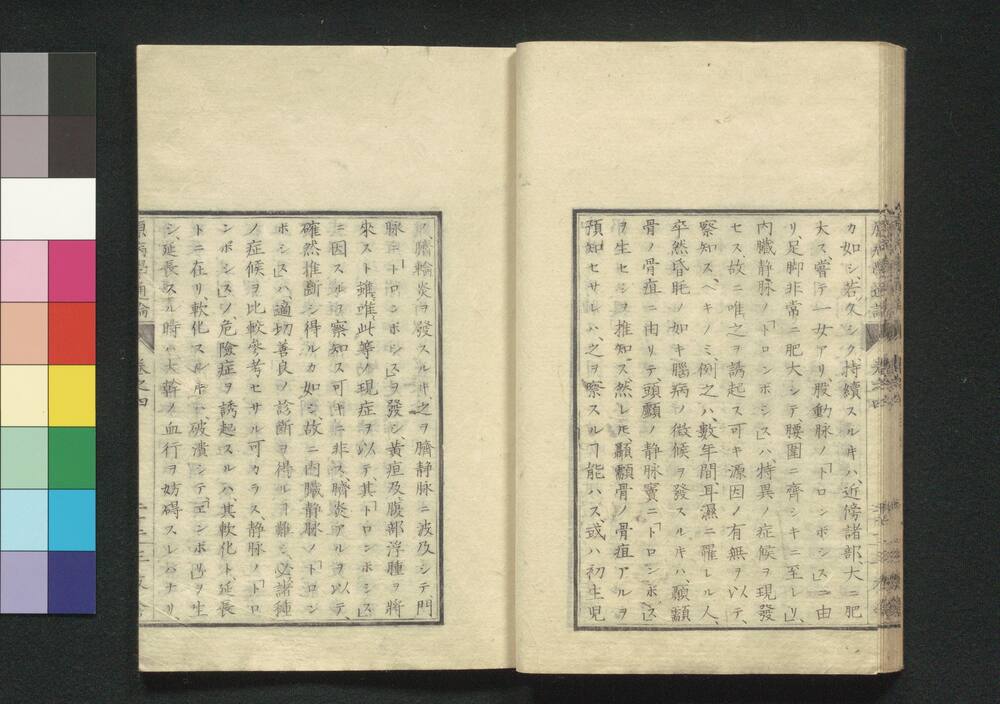 カ如シ、若久シク持續スルキハ、近傍諸部、大ニ肥
大ス、嘗テ一女アリ、股動脉ノ「トロンボシス」ニ由
リ、足脚非常ニ肥大シテ腰圍ニ齊シキニ至レリ、
内臓静脉ノ「トロンボシス」ハ、特異ノ症候ヲ現發
セス、故ニ唯之ヲ誘起ス可キ源因ノ有無ヲ以テ、
察知スヘキノミ、例之ハ、數年間、耳濕ニ罹レル人、
卒然昏眊ノ如キ腦病ノ徴候ヲ發スルキハ、顳顬
骨ノ骨疽ニ由リテ、頭顱ノ静脉竇ニ「トロンボシス」
ヲ生セシヲ推知ス、然レ𪜈、顳顬骨ノ骨疽アルヲ
預知セサレハ、之ヲ察スルヿ能ハス、或ハ初生兒
ノ臍輪炎ヲ發スルキ、之ヲ臍静脉ニ波及シテ門
脉ニ「トロンボシス」ヲ發シ、黄疸及腹部浮腫ヲ將
來スト雖、唯此等ノ現症ヲ以テ其「トロンボシス」
ニ因スルヲ察知ス可キニ非ス、臍炎アルヲ以テ、
確然推斷シ得ルカ如シ、故ニ内臓静脉ノ「トロン
ボシス」ハ、適切善良ノ診斷ヲ得ルヿ難シ、必諸種
ノ症候ヲ比較參考セサル可カラス、静脉ノ「トロ
ンボシス」ノ危險症ヲ誘起スルハ、其軟化ト、延長
トニ在リ、軟化スルキハ、破潰シテ「エンボリ」ヲ生
シ、延長スル時ハ、大幹ノ血行ヲ妨碍スレハナリ、
原病學通論 巻之四